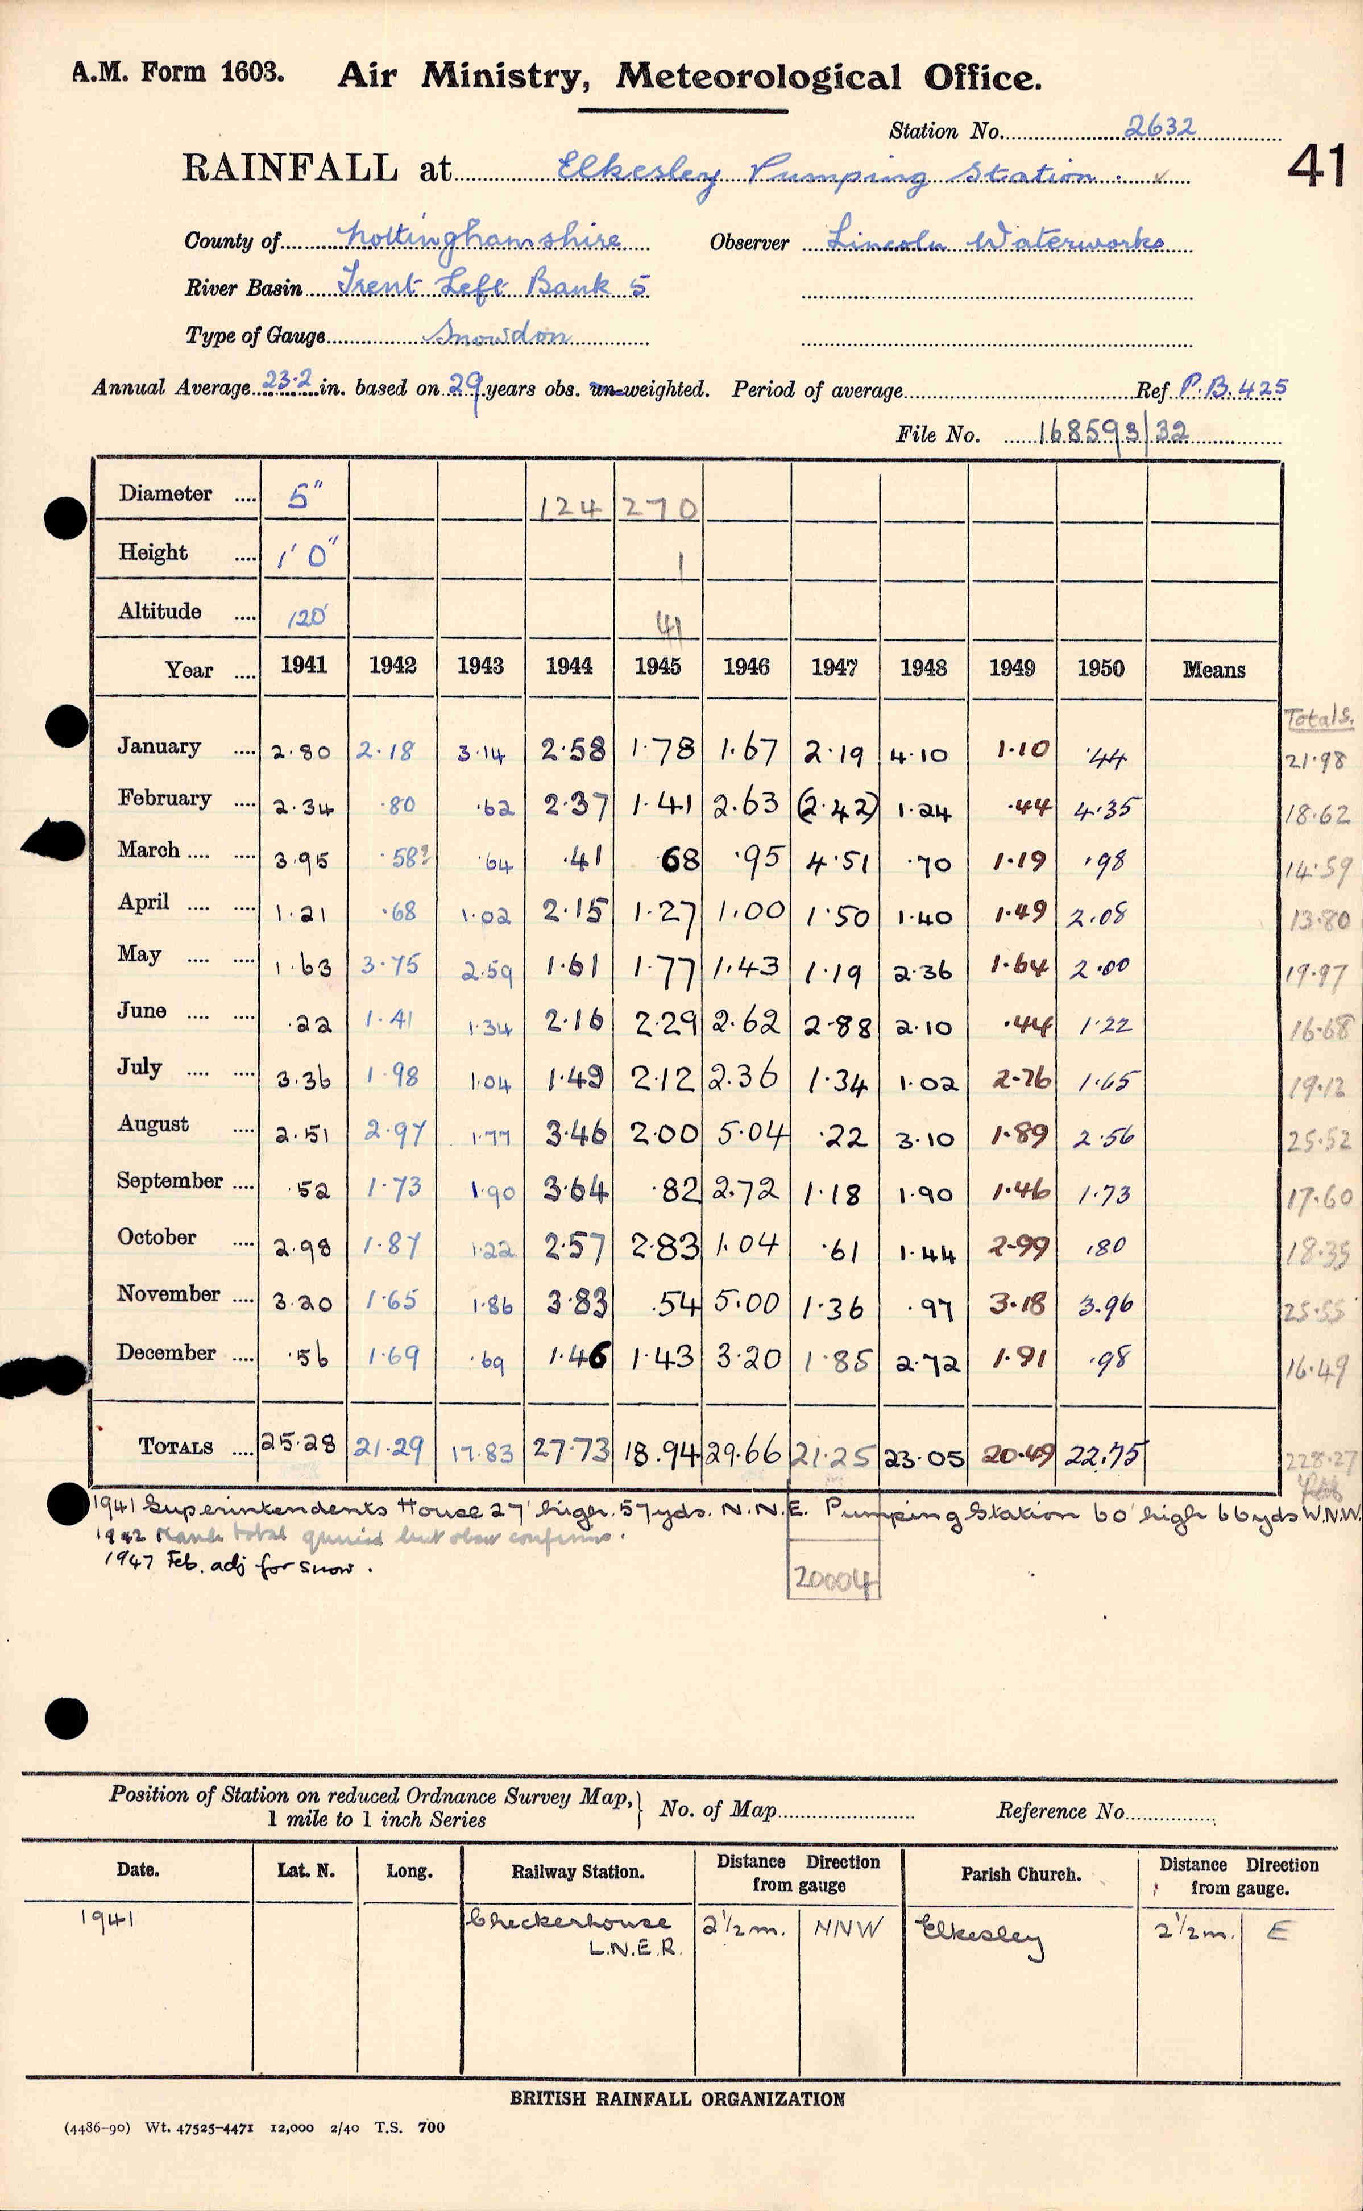 A.M. Form 1603. Air Ministry, Meteorological Office.
Station No. 2632
41
RAINFALL at Elkesley Pumping Station.
County of Nottinghamshire Observer Lincoln Waterworks
River Basin Trent Left Bank 5
Type of Gauge Snowdon
Annual Average 23.2 in. based on 29 years obs. un-weighted. Period of average Ref P.B. 425
File No. 168593/32
Diameter 5" 124 270
Height 1' 0" 1
Altitude 120' 41
Year 1941 1942 1943 1944 1945 1946 1947 1948 1949 1950 Means
Totals.
January 2.80 2.18 3.14 2.58 1.78 1.67 2.19 4.10 1.10 .44 21.98
February 2.34 .80 .62 2.37 1.41 2.63 (2.42) 1.24 .44 4.35 18.62
March 3.95 .58? .64 .41 .68 .95 4.51 .70 1.19 .98 14.59
April 1.21 .68 1.02 2.15 1.27 1.00 1.50 1.40 1.49 2.08 13.80
May 1.63 3.75 2.59 1.61 1.77 1.43 1.19 2.36 1.64 2.00 19.97
June .22 1.41 1.34 2.16 2.29 2.62 2.88 2.10 .44 1.22 16.68
July 3.36 1.98 1.04 1.49 2.12 2.36 1.34 1.02 2.76 1.65 19.12
August 2.51 2.97 1.77 3.46 2.00 5.04 .22 3.10 1.89 2.56 25.52
September .52 1.73 1.90 3.64 .82 2.72 1.18 1.90 1.46 1.73 17.60
October 2.98 1.87 1.22 2.57 2.83 1.04 .61 1.44 2.99 .80 18.35
November 3.20 1.65 1.86 3.83 .54 5.00 1.36 .97 3.18 3.96 25.55
December .56 1.69 .69 1.46 1.43 3.20 1.85 2.72 1.91 .98 16.49
TOTALS 25.28 21.29 17.83 27.73 18.94 29.66 21.25 23.05 20.49 22.75 228.27
1941 Superintendents House 27' high. 57yds. N.N.E. Pumping Station 60' high 66yds W.N.W.
1942 March total queried but obser confirms.
1947 Feb. adj for snow.
20004
Position of Station on reduced Ordnance Survey Map, } No. of Map Reference No.
1 mile to 1 inch Series
Date. Lat. N. Long. Railway Station. Distance Direction from gauge Parish Church. Distance Direction from gauge.
1941 Checkerhouse 2½m. NNW Elkesley 2½m. E
L.N.E.R.
BRITISH RAINFALL ORGANIZATION
(4486-90) Wt. 47525-4471 12,000 2/40 T.S. 700